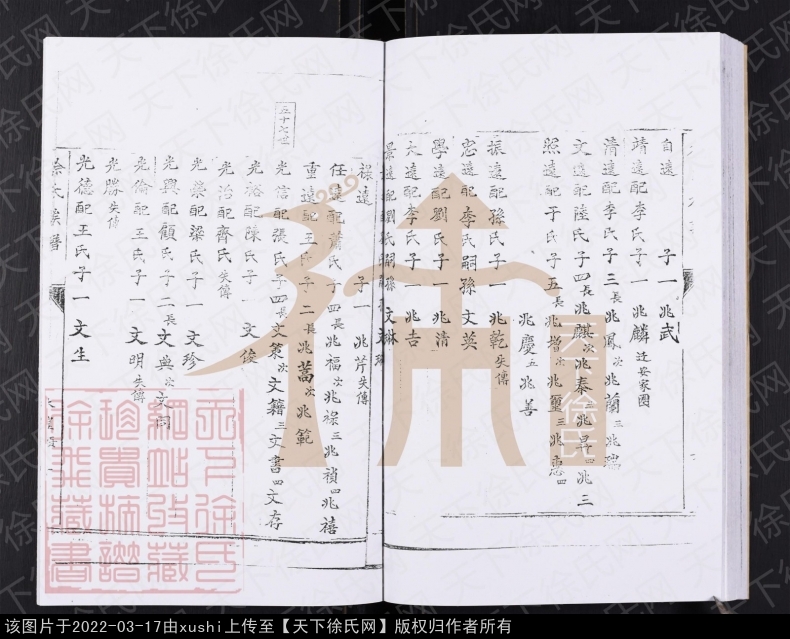 自遠　子一兆武
靖遠配李氏子一兆麟迁安家圈
清遠配李氏子三長兆鳳次兆蘭三兆瑞
文遠配陸氏子四長兆麒次兆泰兆昇四兆三
照遠配于氏子五長兆次兆璽三兆惠四
兆慶五兆善
振遠配孫氏子一兆乾失傳
忠遠配李氏嗣孫文英
學遠配劉氏子一兆清
大遠配李氏子一兆吉
景遠配劉氏嗣孫文琳
祿遠　子一兆芹失傳
任遠配蕭氏子四長兆福次兆祿三兆禎四兆禧
重遠配王氏子二長兆蒿次兆範
五十七世
光信配張氏子四長文策次文籍三文書四文存
光裕配陳氏子一文俊
光治配齊氏失傳
光榮配梁氏子一文珍
光興配顧氏子二長文典次文同
光倫配王氏子一文明失傳
光勝失傳
光德配王氏子一文生
徐氏族譜
天下徐氏
天下徐氏网
天下徐氏
網站收藏
珍貴楠譜
徐氏藏書
该图片于2022-03-17由xushi上传至【天下徐氏网】版权归作者所有